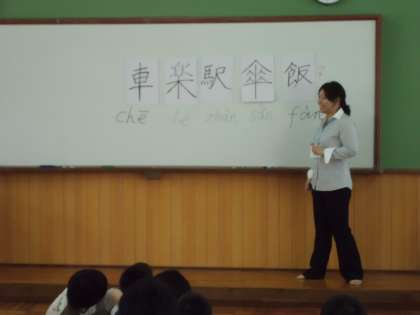 車楽駅傘飯
chē lè zhàn sǎn fàn